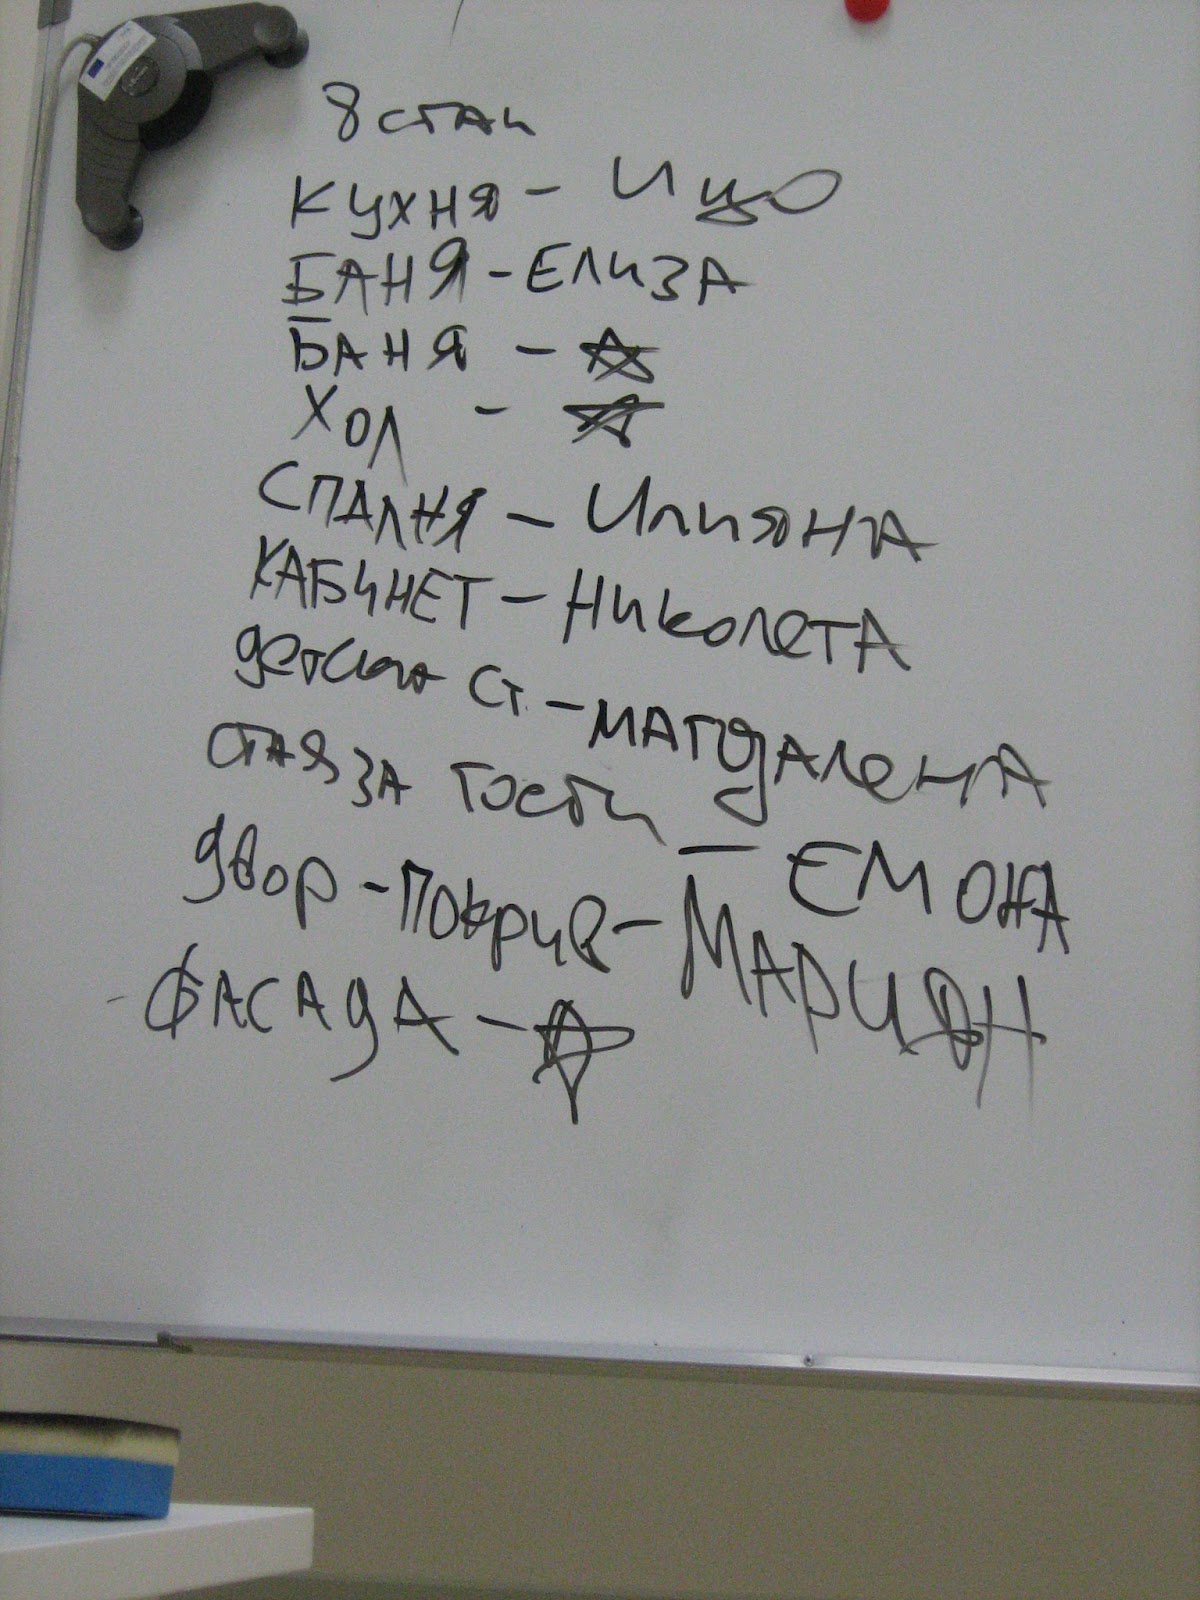 8 стаи
КУХНЯ - Ицо
БАНЯ - ЕЛИЗА
БАНЯ - ☆
ХОЛ - ☆
СПАЛНЯ - Илияна
КАБИНЕТ - НИКОЛЕТА
детска ст. - МАГДАЛЕНА
СТАЯ ЗА Гости - ЕМОНА
двор - Покрив - МАРИЯН
ФАСАДА - ☆